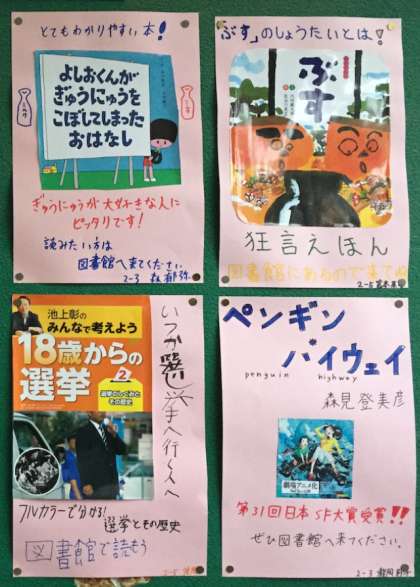 とてもわかりやすい本!
よしおくんが
ぎゅうにゅうを
こぼしてしまった
おはなし
ぎゅうにゅうが大好きな人に
ピッタリです!
読みたい方は
図書館へ来てください。
2-3
「ぶす」のしょうたいとは!
ぶす
狂言えほん
図書館にあるので来てね
2-5
池上彰の
みんなで考えよう
18歳からの
選挙
2
選挙のしくみと
その歴史
いつか選挙へ行く人へ
フルカラーで分かる!
選挙とその歴史
図書館で読もう
2-5
ペンギン
ハイウェイ
penguin highway
森見登美彦
劇場アニメ化
第31回日本SF大賞受賞!!
ぜひ図書館へ来てください。
2-3